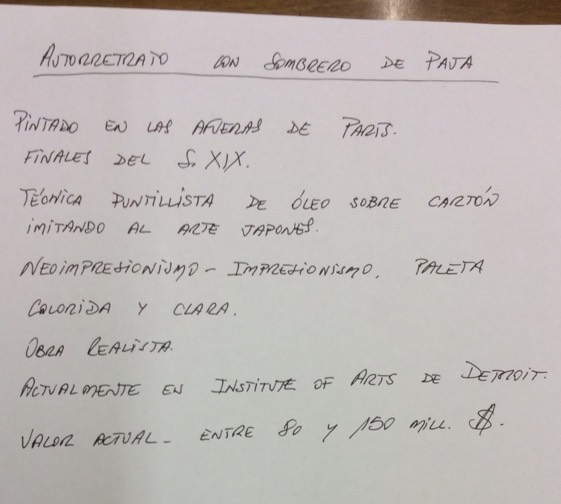 AUTORRETRATO CON SOMBRERO DE PAJA
PINTADO EN LAS AFUERAS DE PARIS.
FINALES DEL S. XIX.
TÉCNICA PUNTILLISTA DE ÓLEO SOBRE CARTÓN
IMITANDO AL ARTE JAPONES.
NEOIMPRESIONISMO - IMPRESIONISMO. PALETA
COLORIDA Y CLARA.
OBRA REALISTA.
ACTUALMENTE EN INSTITUTE OF ARTS DE DETROIT.
VALOR ACTUAL - ENTRE 80 Y 150 MILL. $.